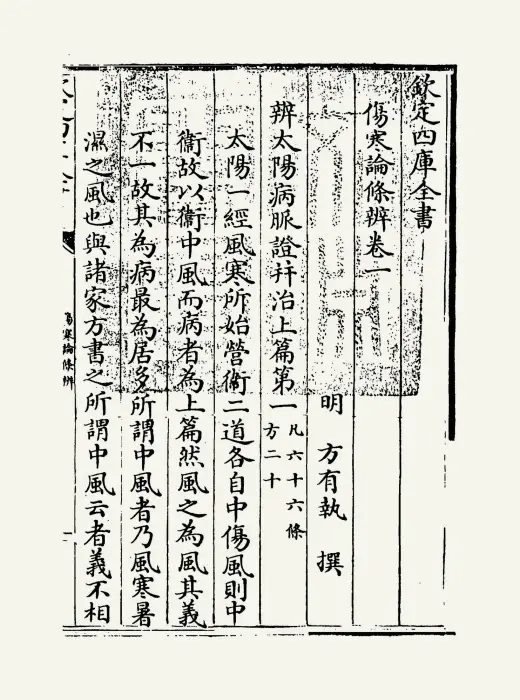 欽定四庫全書
傷寒論條辨卷一
明 方有執 撰
辨太陽病脈證并治上篇第一
凡六十六條
方二十
太陽一經風寒所始營衛二道各自中傷風則中
衞故以衞中風而病者為上篇然風之為風其義
不一故其為病最為居多所謂中風者乃風寒暑
濕之風也與諸家方書之所謂中風云者義不相
傷寒論條辨